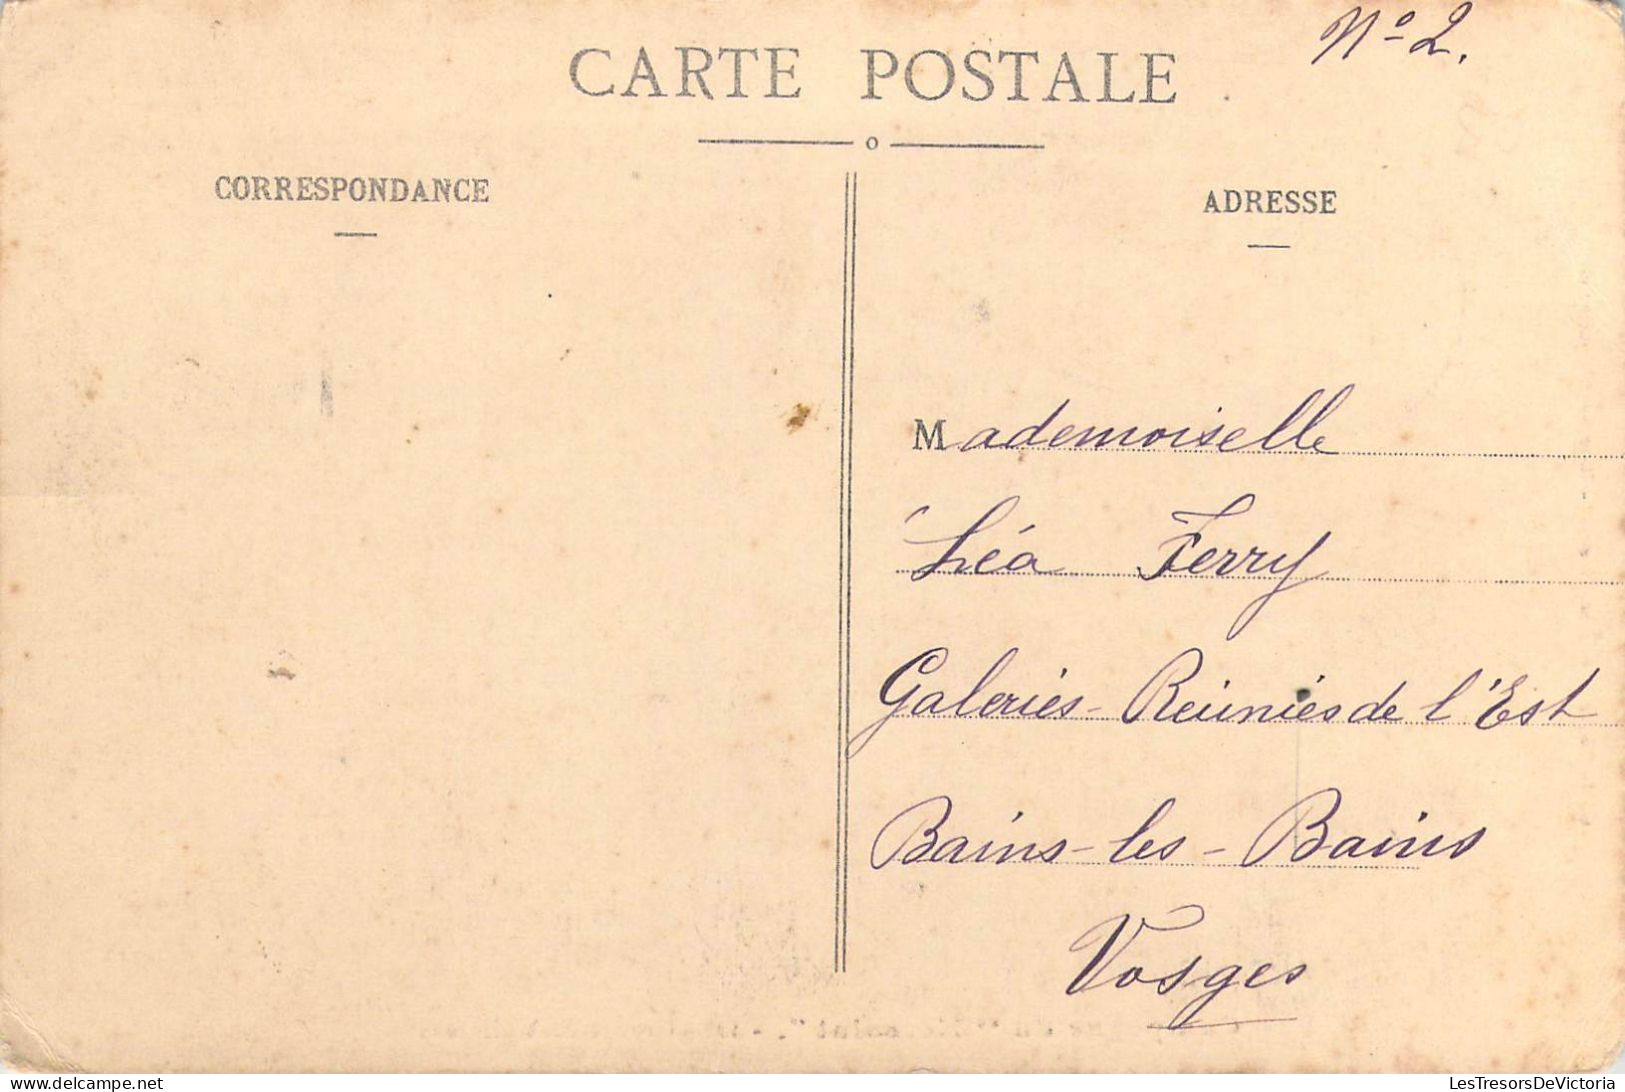 N° 2.
CARTE POSTALE
CORRESPONDANCE
ADRESSE
Mademoiselle
Léa Ferry
Galeries-Réunies de l'Est
Bains-les-Bains
Vosges
delcampe.net
LesTresorsDeVictoria